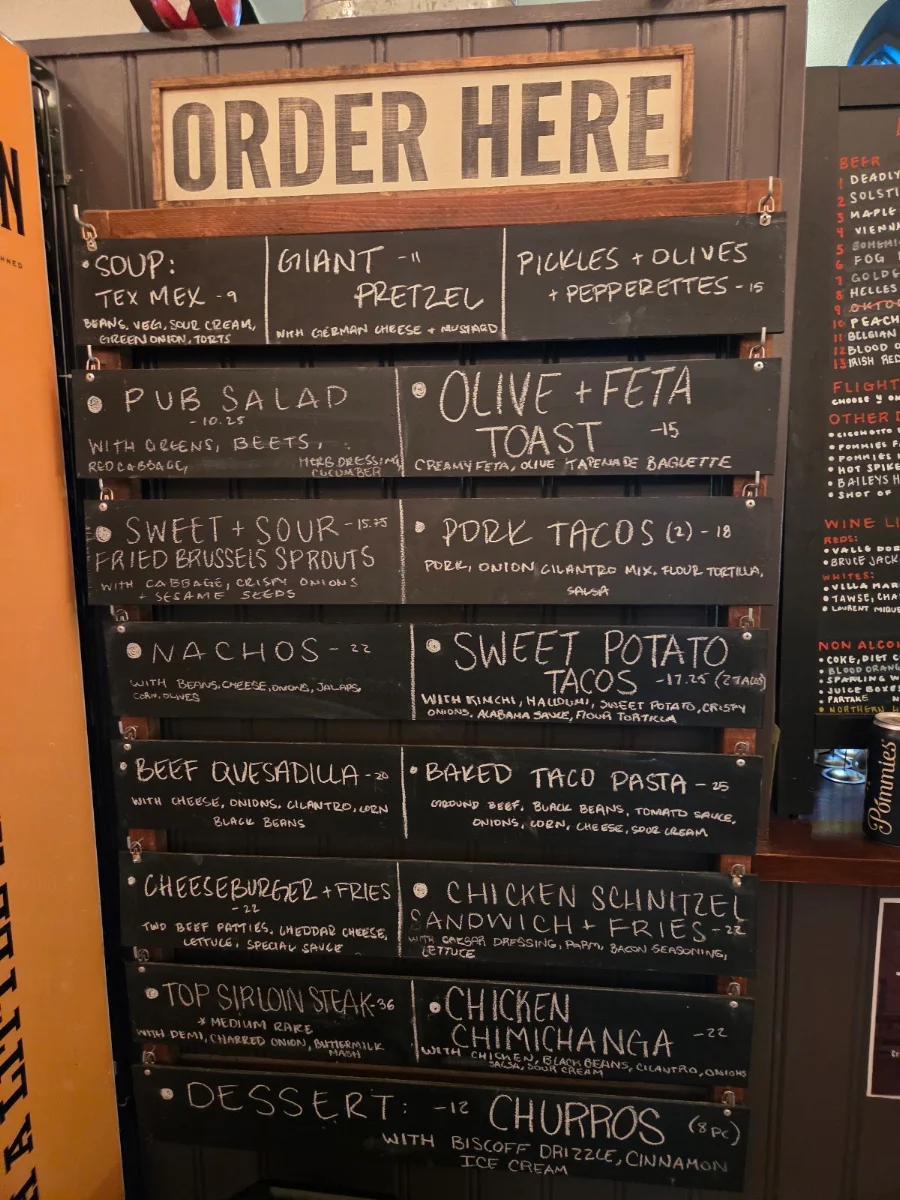 ORDER HERE
SOUP:
TEX MEX - 9
BEANS, VEGI, SOUR CREAM,
GREEN ONION, TORTS
GIANT - 11
PRETZEL
WITH GERMAN CHEESE + MUSTARD
PICKLES + OLIVES
+ PEPPERETTES - 15
PUB SALAD
- 10.25
WITH GREENS, BEETS,
RED CABBAGE, HERB DRESSING,
CUCUMBER
OLIVE + FETA
TOAST - 15
CREAMY FETA, OLIVE TAPENADE BAGUETTE
SWEET + SOUR - 15.75
FRIED BRUSSELS SPROUTS
WITH CABBAGE, CRISPY ONIONS
+ SESAME SEEDS
PORK TACOS (2) - 18
PORK, ONION CILANTRO MIX, FLOUR TORTILLA,
SALSA
NACHOS - 22
WITH BEANS, CHEESE, ONIONS, JALAPS,
CORN, OLIVES
SWEET POTATO
TACOS - 17.25 (2 TACOS)
WITH KIMCHI, HALOUMI, SWEET POTATO, CRISPY
ONIONS, ALABAMA SAUCE, FLOUR TORTILLA
BEEF QUESADILLA - 20
WITH CHEESE, ONIONS, CILANTRO, CORN
BLACK BEANS
BAKED TACO PASTA - 25
GROUND BEEF, BLACK BEANS, TOMATO SAUCE,
ONIONS, CORN, CHEESE, SOUR CREAM
CHEESEBURGER + FRIES
- 22
TWO BEEF PATTIES, CHEDDAR CHEESE,
LETTUCE, SPECIAL SAUCE
CHICKEN SCHNITZEL
SANDWICH + FRIES - 22
WITH CAESAR DRESSING, PARM, BACON SEASONING,
LETTUCE
TOP SIRLOIN STEAK - 36
* MEDIUM RARE
WITH DEMI, CHARRED ONION, BUTTERMILK
MASH
CHICKEN
CHIMICHANGA - 22
WITH CHICKEN, BLACK BEANS, CILANTRO, ONIONS
SALSA, SOUR CREAM
DESSERT: - 12 CHURROS (8 PC)
WITH BISCOFF DRIZZLE, CINNAMON
ICE CREAM
BEER
1 DEADLY
2 SOLSTI
3 MAPLE
4 VIENNA
5 BOHEMIA
6 FOG
7 GOLDE
8 HELLES
9 OKTO
10 PEACH
11 BELGIAN
12 BLOOD O
13 IRISH RED
FLIGHT
CHOOSE 4 ON
OTHER D
POMMIES F
POMMIES
HOT SPIKE
BAILEYS H
SHOT OF
WINE LI
REDS:
VALLE
BRUCE JACK
WHITES:
VILLA MAR
TAWSE, CHA
LAURENT MIQUE
NON ALCOH
COKE, DIET C
BLOOD ORANG
SPARKLING W
JUICE BOXES
PARTAKE
NORTHERN
Pómmies